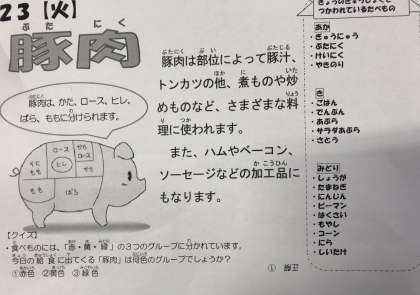 23【火】
豚肉
ぶたにく
豚肉は部位によって豚汁、
トンカツの他、煮ものや炒
めものなど、さまざまな料
理に使われます。
また、ハムやベーコン、
ソーセージなどの加工品に
もなります。
豚肉は、かた、ロース、ヒレ、
ばら、ももに分けられます。
ロース
かた
ロース
かた
ヒレ
もも
ばら
【クイズ】
・食べものには、「赤・黄・緑」の3つのグループに分かれています。
今日の給食に出てくる「豚肉」は何色のグループでしょうか？
①赤色 ②黄色 ③緑色
つかわれているたべもの
あか
・ぎゅうにゅう
・ぶたにく
・けいにく
・やきのり
き
・ごはん
・でんぷん
・あぶら
・サラダあぶら
・さとう
みどり
・しょうが
・たまねぎ
・にんじん
・ピーマン
・はくさい
・もやし
・コーン
・にら
・しいたけ